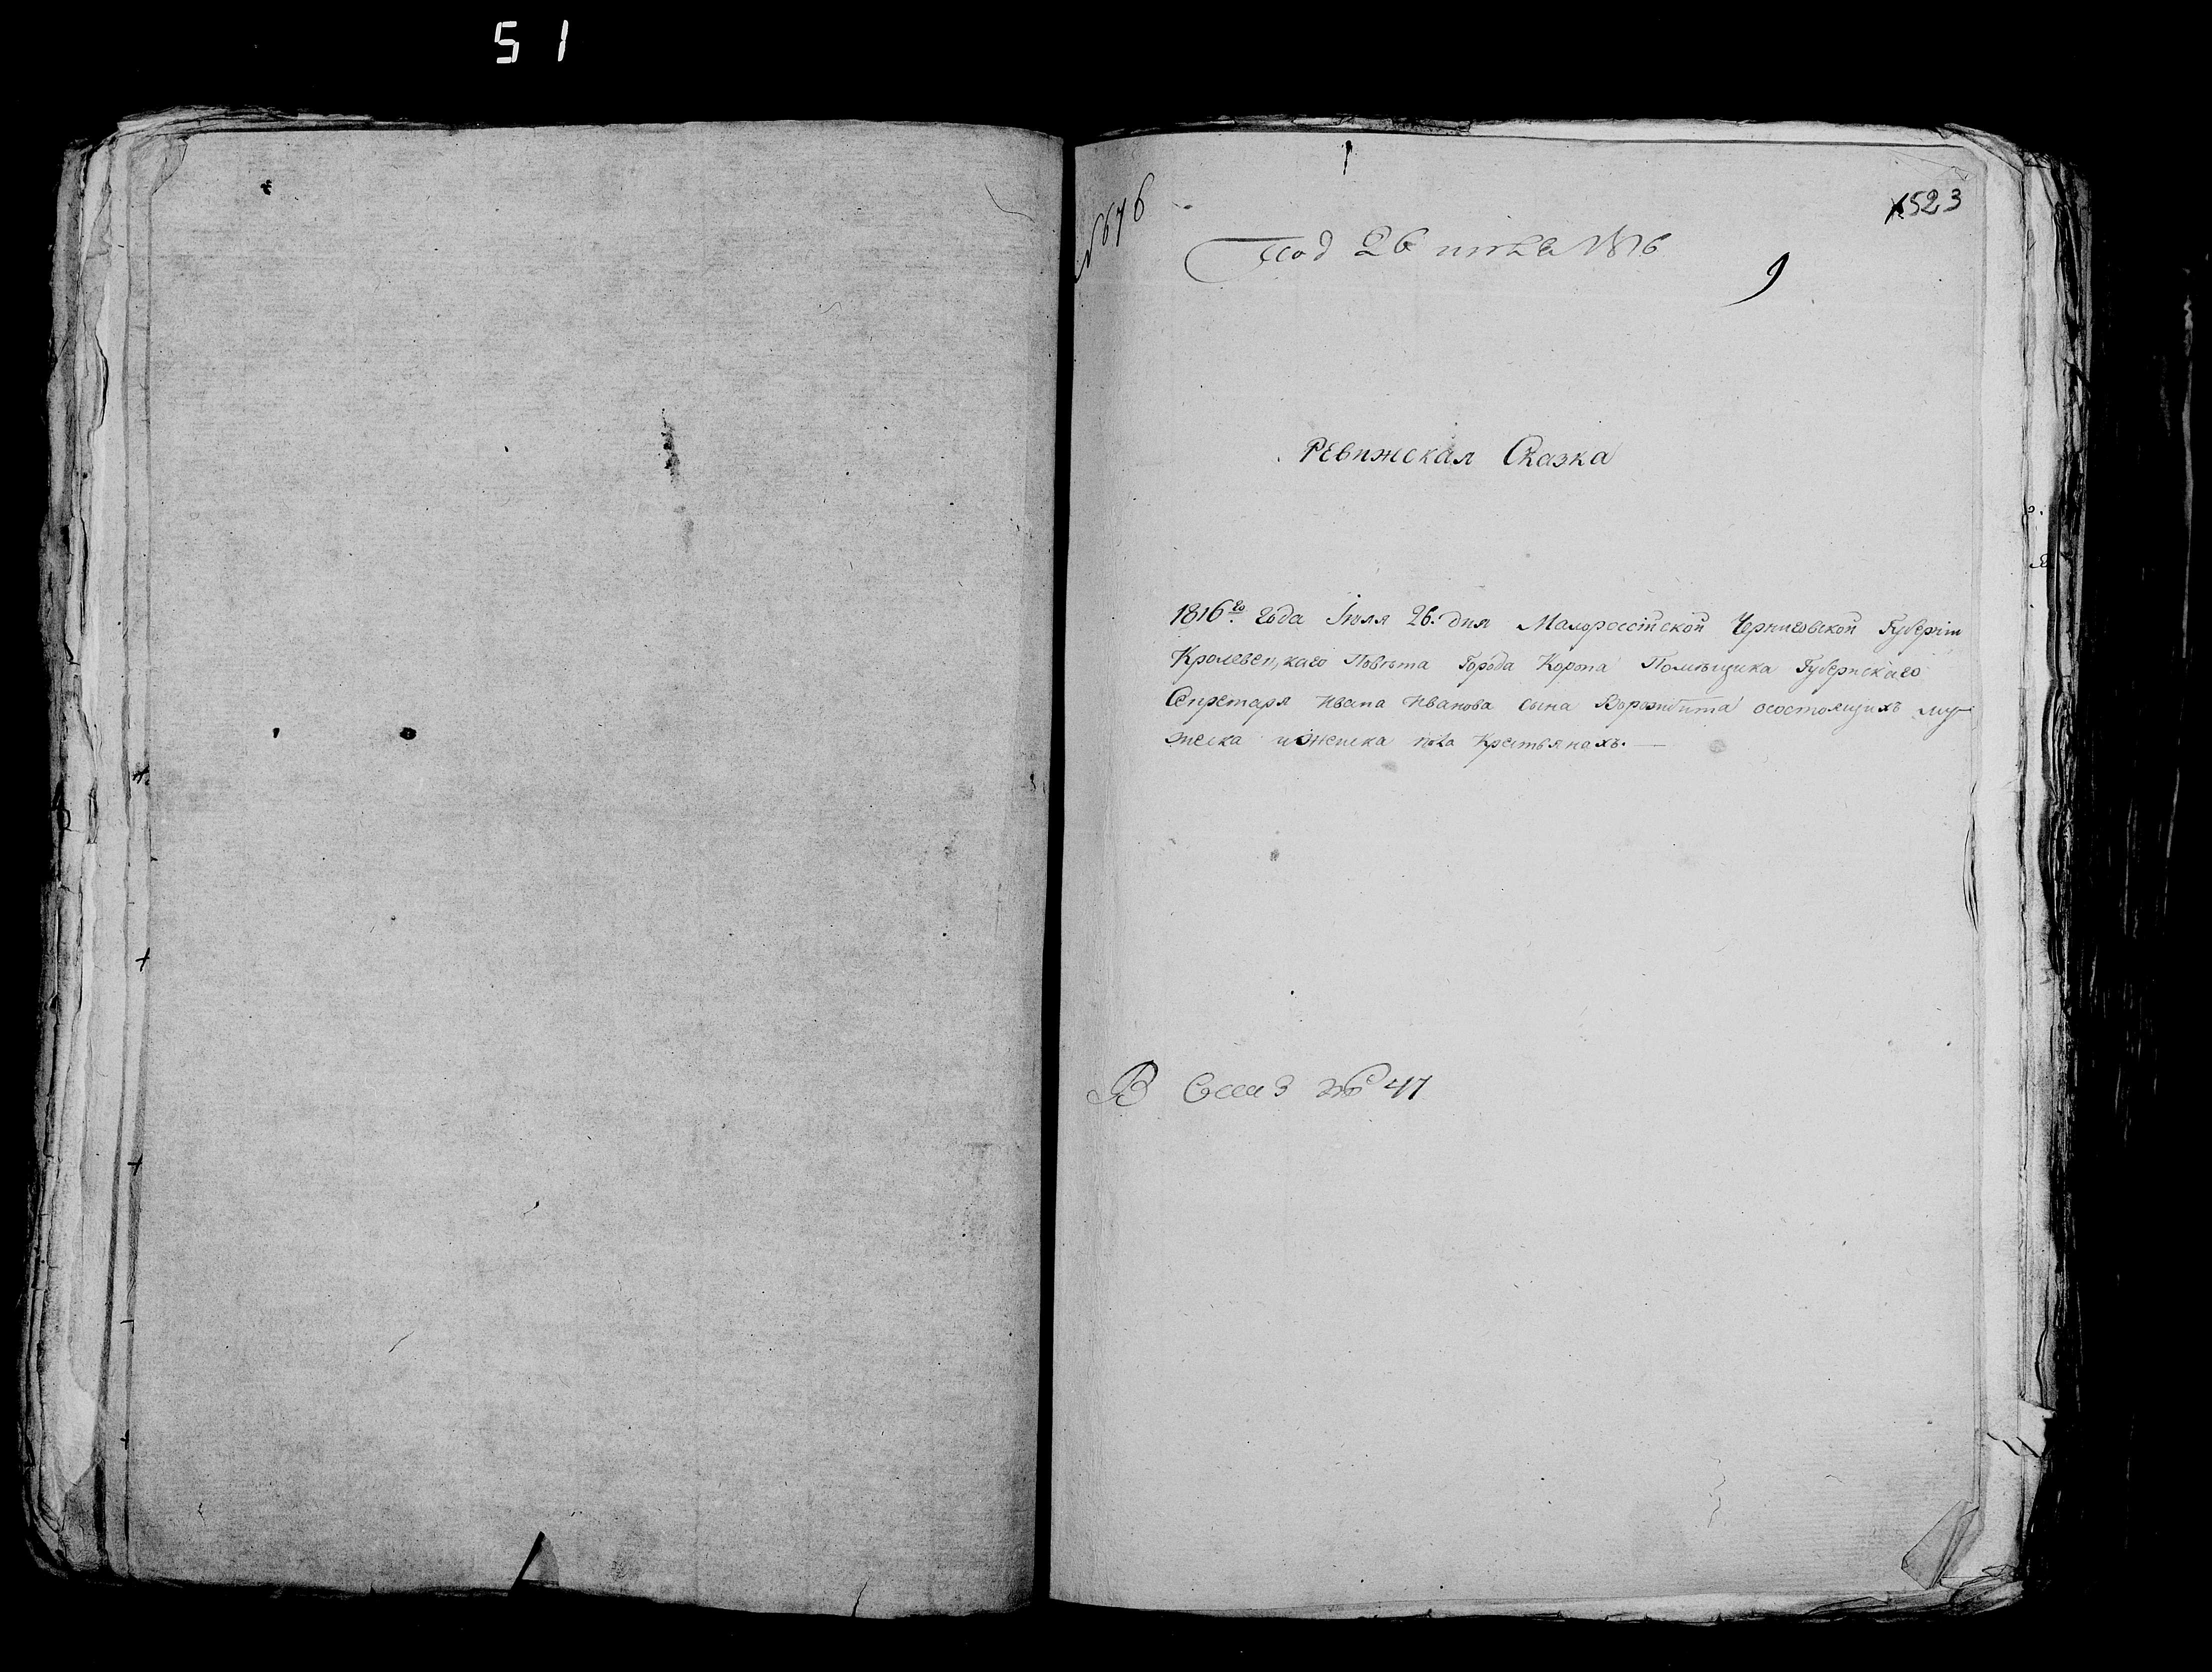 51
№676
1523
Под 26 июля 1816
9
Ревижская Сказка
1816го. года Іюля 26. дня Малороссійской Черниговской Губерніи
Кролевецкаго Повѣта Города Коропа Помѣщика Губернскаго
Секретаря Ивана Иванова сына Ворожбита осостоящихъ му-
жеска иженска пола Крестьянахъ.
В №47